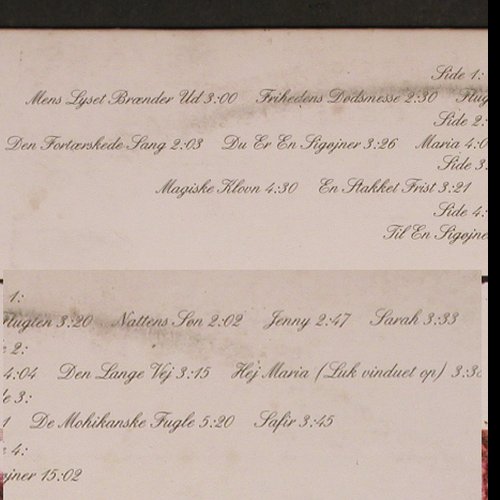 Side 1:
Mens Lyset Brænder Ud 3:00 Frihedens Dødsmesse 2:30 Flug
Side 2:
Den Fortærskede Sang 2:03 Du Er En Sigøjner 3:26 Maria 4:0
Side 3:
Magiske Klovn 4:30 En Stakket Frist 3:21
Side 4:
Til En Sigøjne
1:
Flugten 3:20 Nattens Søn 2:02 Jenny 2:47 Sarah 3:33
e 2:
4:04 Den Lange Vej 3:15 Hej Maria (Luk vinduet op) 3:3
e 3:
1 De Mohikanske Fugle 5:20 Safir 3:45
e 4:
øjner 15:02